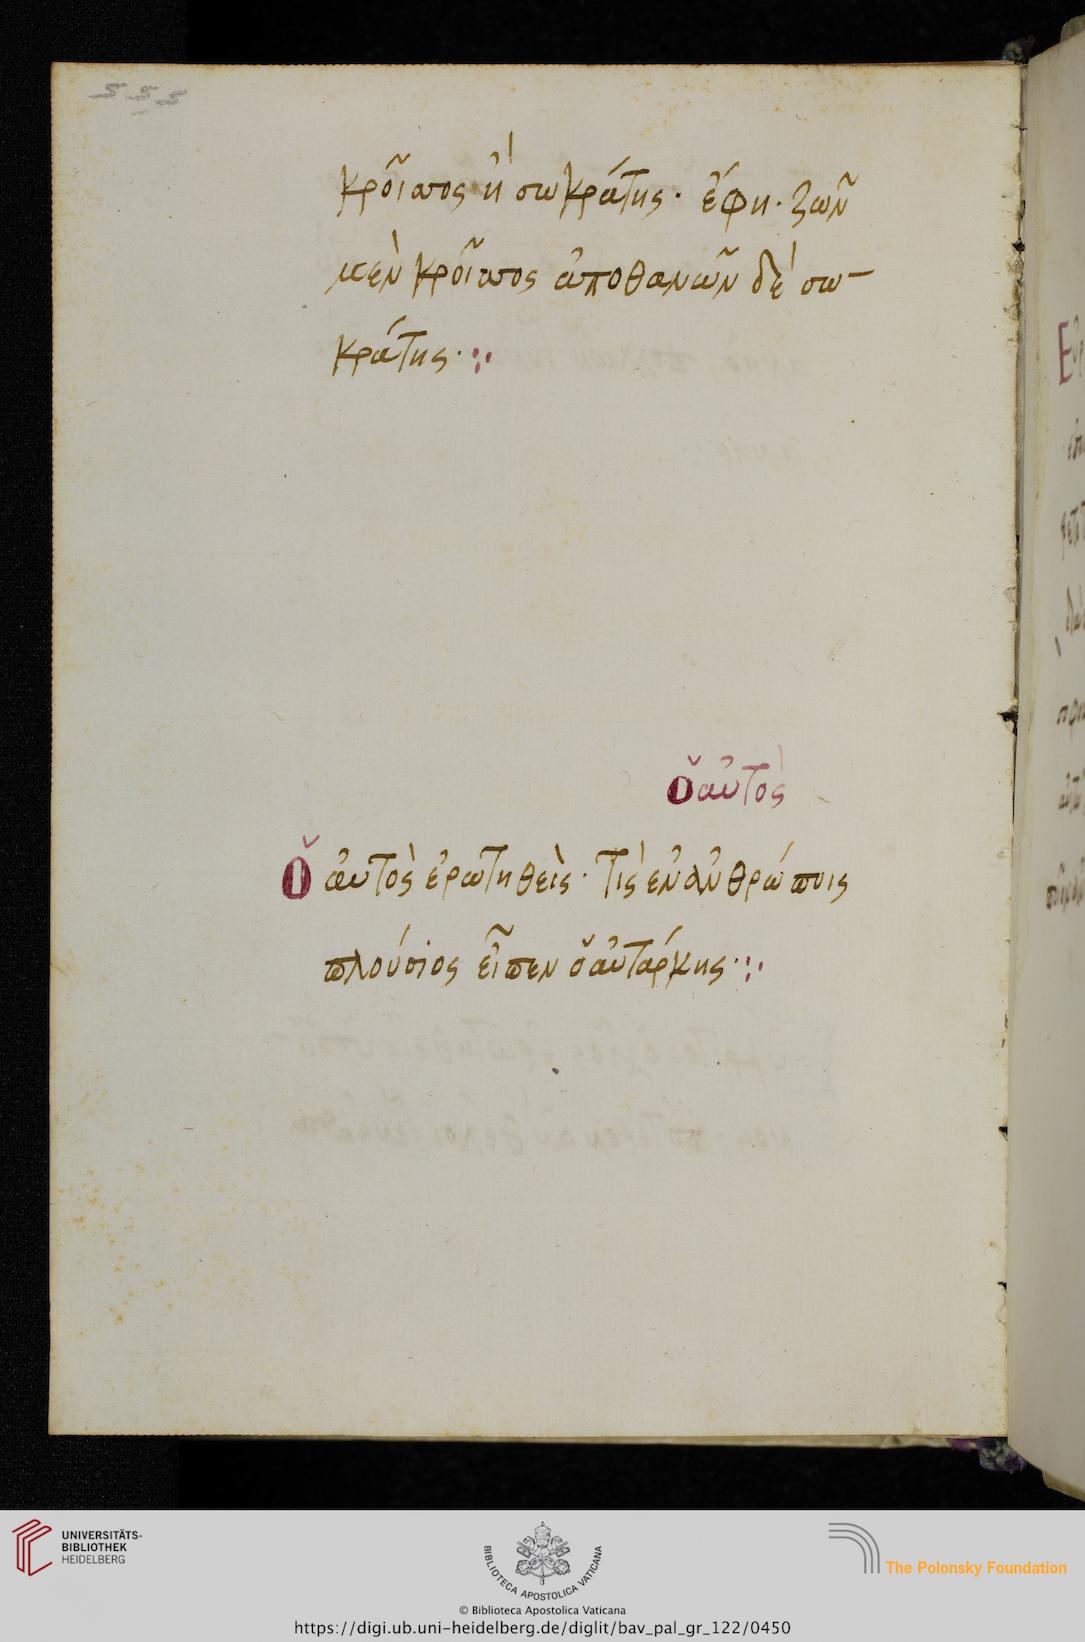 κροῖσος ἢ σωκράτης· ἔφη· ζῶν
μὲν κροῖσος ἀποθανῶν δὲ σω-
κράτης·:·
ὁ αὐτὸς
Ὁ αὐτὸς ἐρωτηθεὶς· τίς ἐν ἀνθρώποις
πλούσιος εἶπεν ὁ αὐτάρκης·:·
UNIVERSITÄTS-
BIBLIOTHEK
HEIDELBERG
BIBLIOTECA APOSTOLICA VATICANA
The Polonsky Foundation
© Biblioteca Apostolica Vaticana
https://digi.ub.uni-heidelberg.de/diglit/bav_pal_gr_122/0450